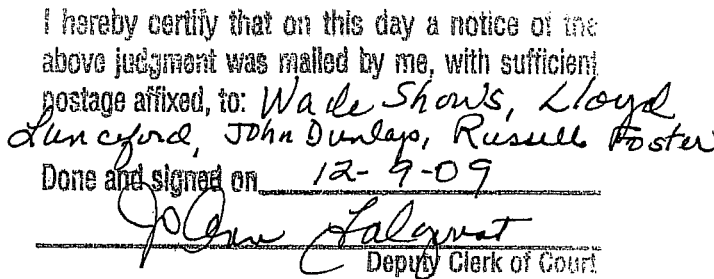 I hereby certify that on this day a notice of the
above judgment was mailed by me, with sufficient
postage affixed, to: Wade Shows, Lloyd
Lunceford, John Dunlap, Russell Foster
Done and signed on 12-9-09
Jo Ann
Deputy Clerk of Court